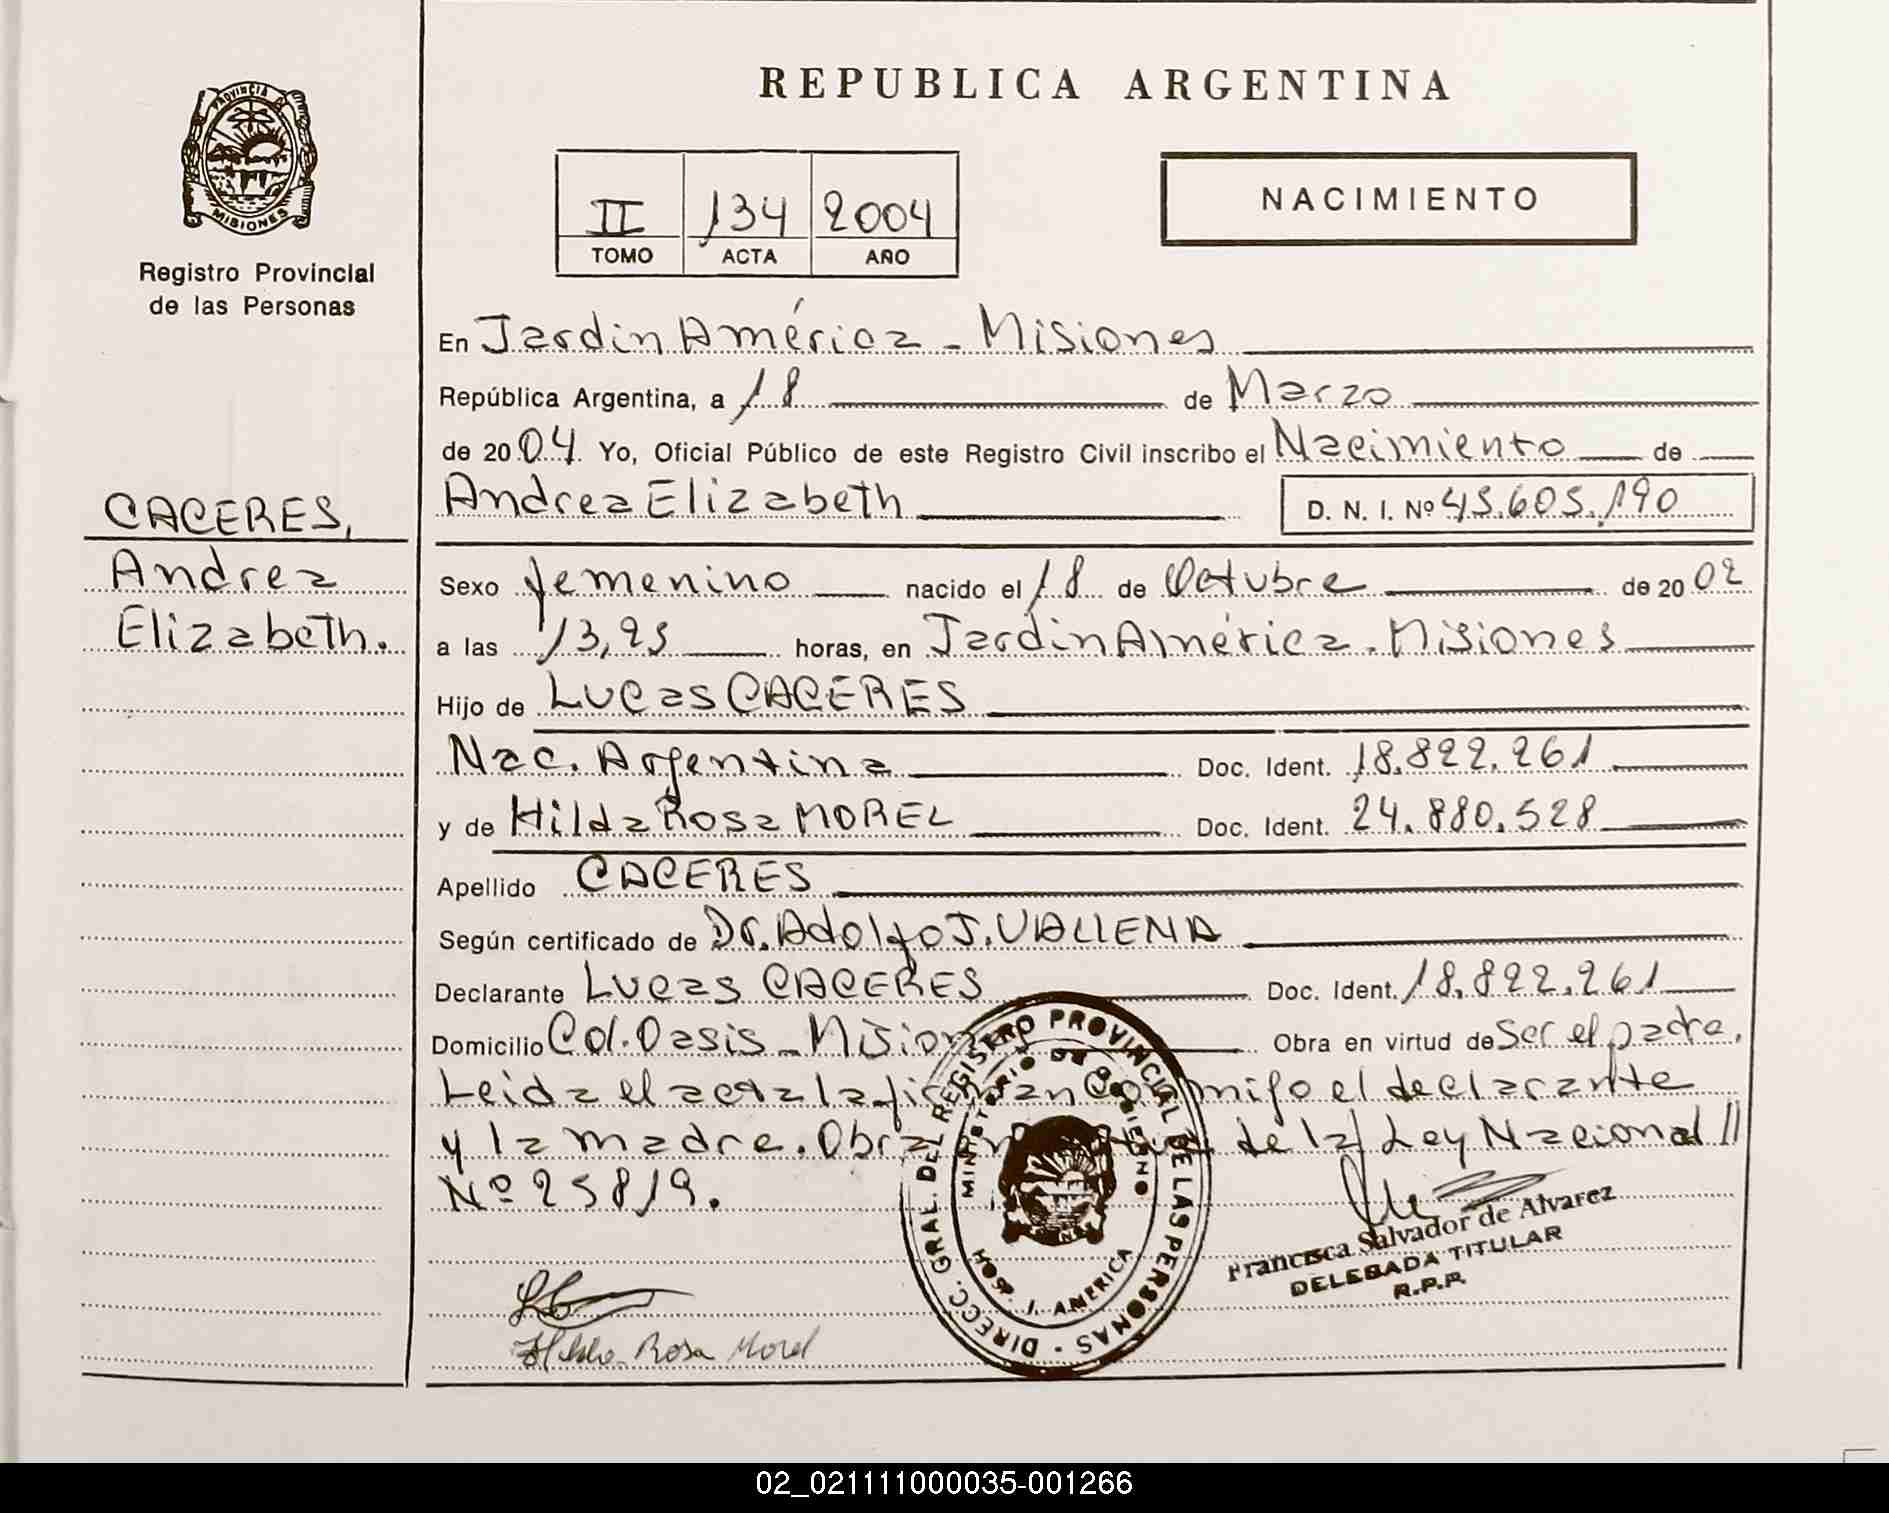 PROVINCIA DE
MISIONES
Registro Provincial
de las Personas
CACERES,
Andrea
Elizabeth.
REPUBLICA ARGENTINA
II 134 2004
TOMO ACTA AÑO
NACIMIENTO
En Jardin América - Misiones
República Argentina, a 18 de Marzo
de 2004. Yo, Oficial Público de este Registro Civil inscribo el Nacimiento de
Andrea Elizabeth D. N. I. Nº 45.605.190
Sexo femenino nacido el 18 de Octubre de 2002
a las 13,25 horas, en Jardin América. Misiones
Hijo de Lucas CACERES
Nac. Argentina Doc. Ident. 18.822.261
y de Hilda Rosa MOREL Doc. Ident. 24.880.528
Apellido CACERES
Según certificado de Dr. Adolfo J. VALLENA
Declarante Lucas CACERES Doc. Ident. 18.822.261
Domicilio Col. Oasis - Obra en virtud de Ser el padre.
Leida el acta la firman conmigo el declarante
y la madre. Obra de la Ley Nacional //
Nº 25819.
DIRECC. GRAL. DEL REGISTRO PROVINCIAL DE LAS PERSONAS -
MINISTERIO DE GOBIERNO
I. AMERICA
Francisca Salvador de Alvarez
DELEGADA TITULAR
R.P.P.
Hilda Rosa Morel
02_021111000035-001266